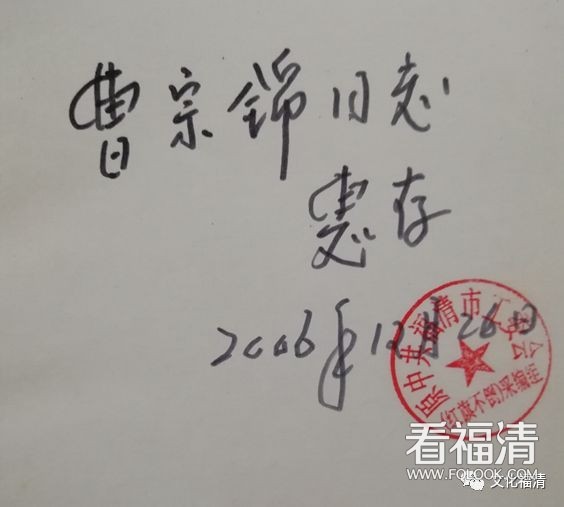 曹宗锦同志
惠存
2006年12月26日
原中共福清市工委会
《红旗不倒》采编组
看福清
WWW.FQLOOK.COM
文化福清